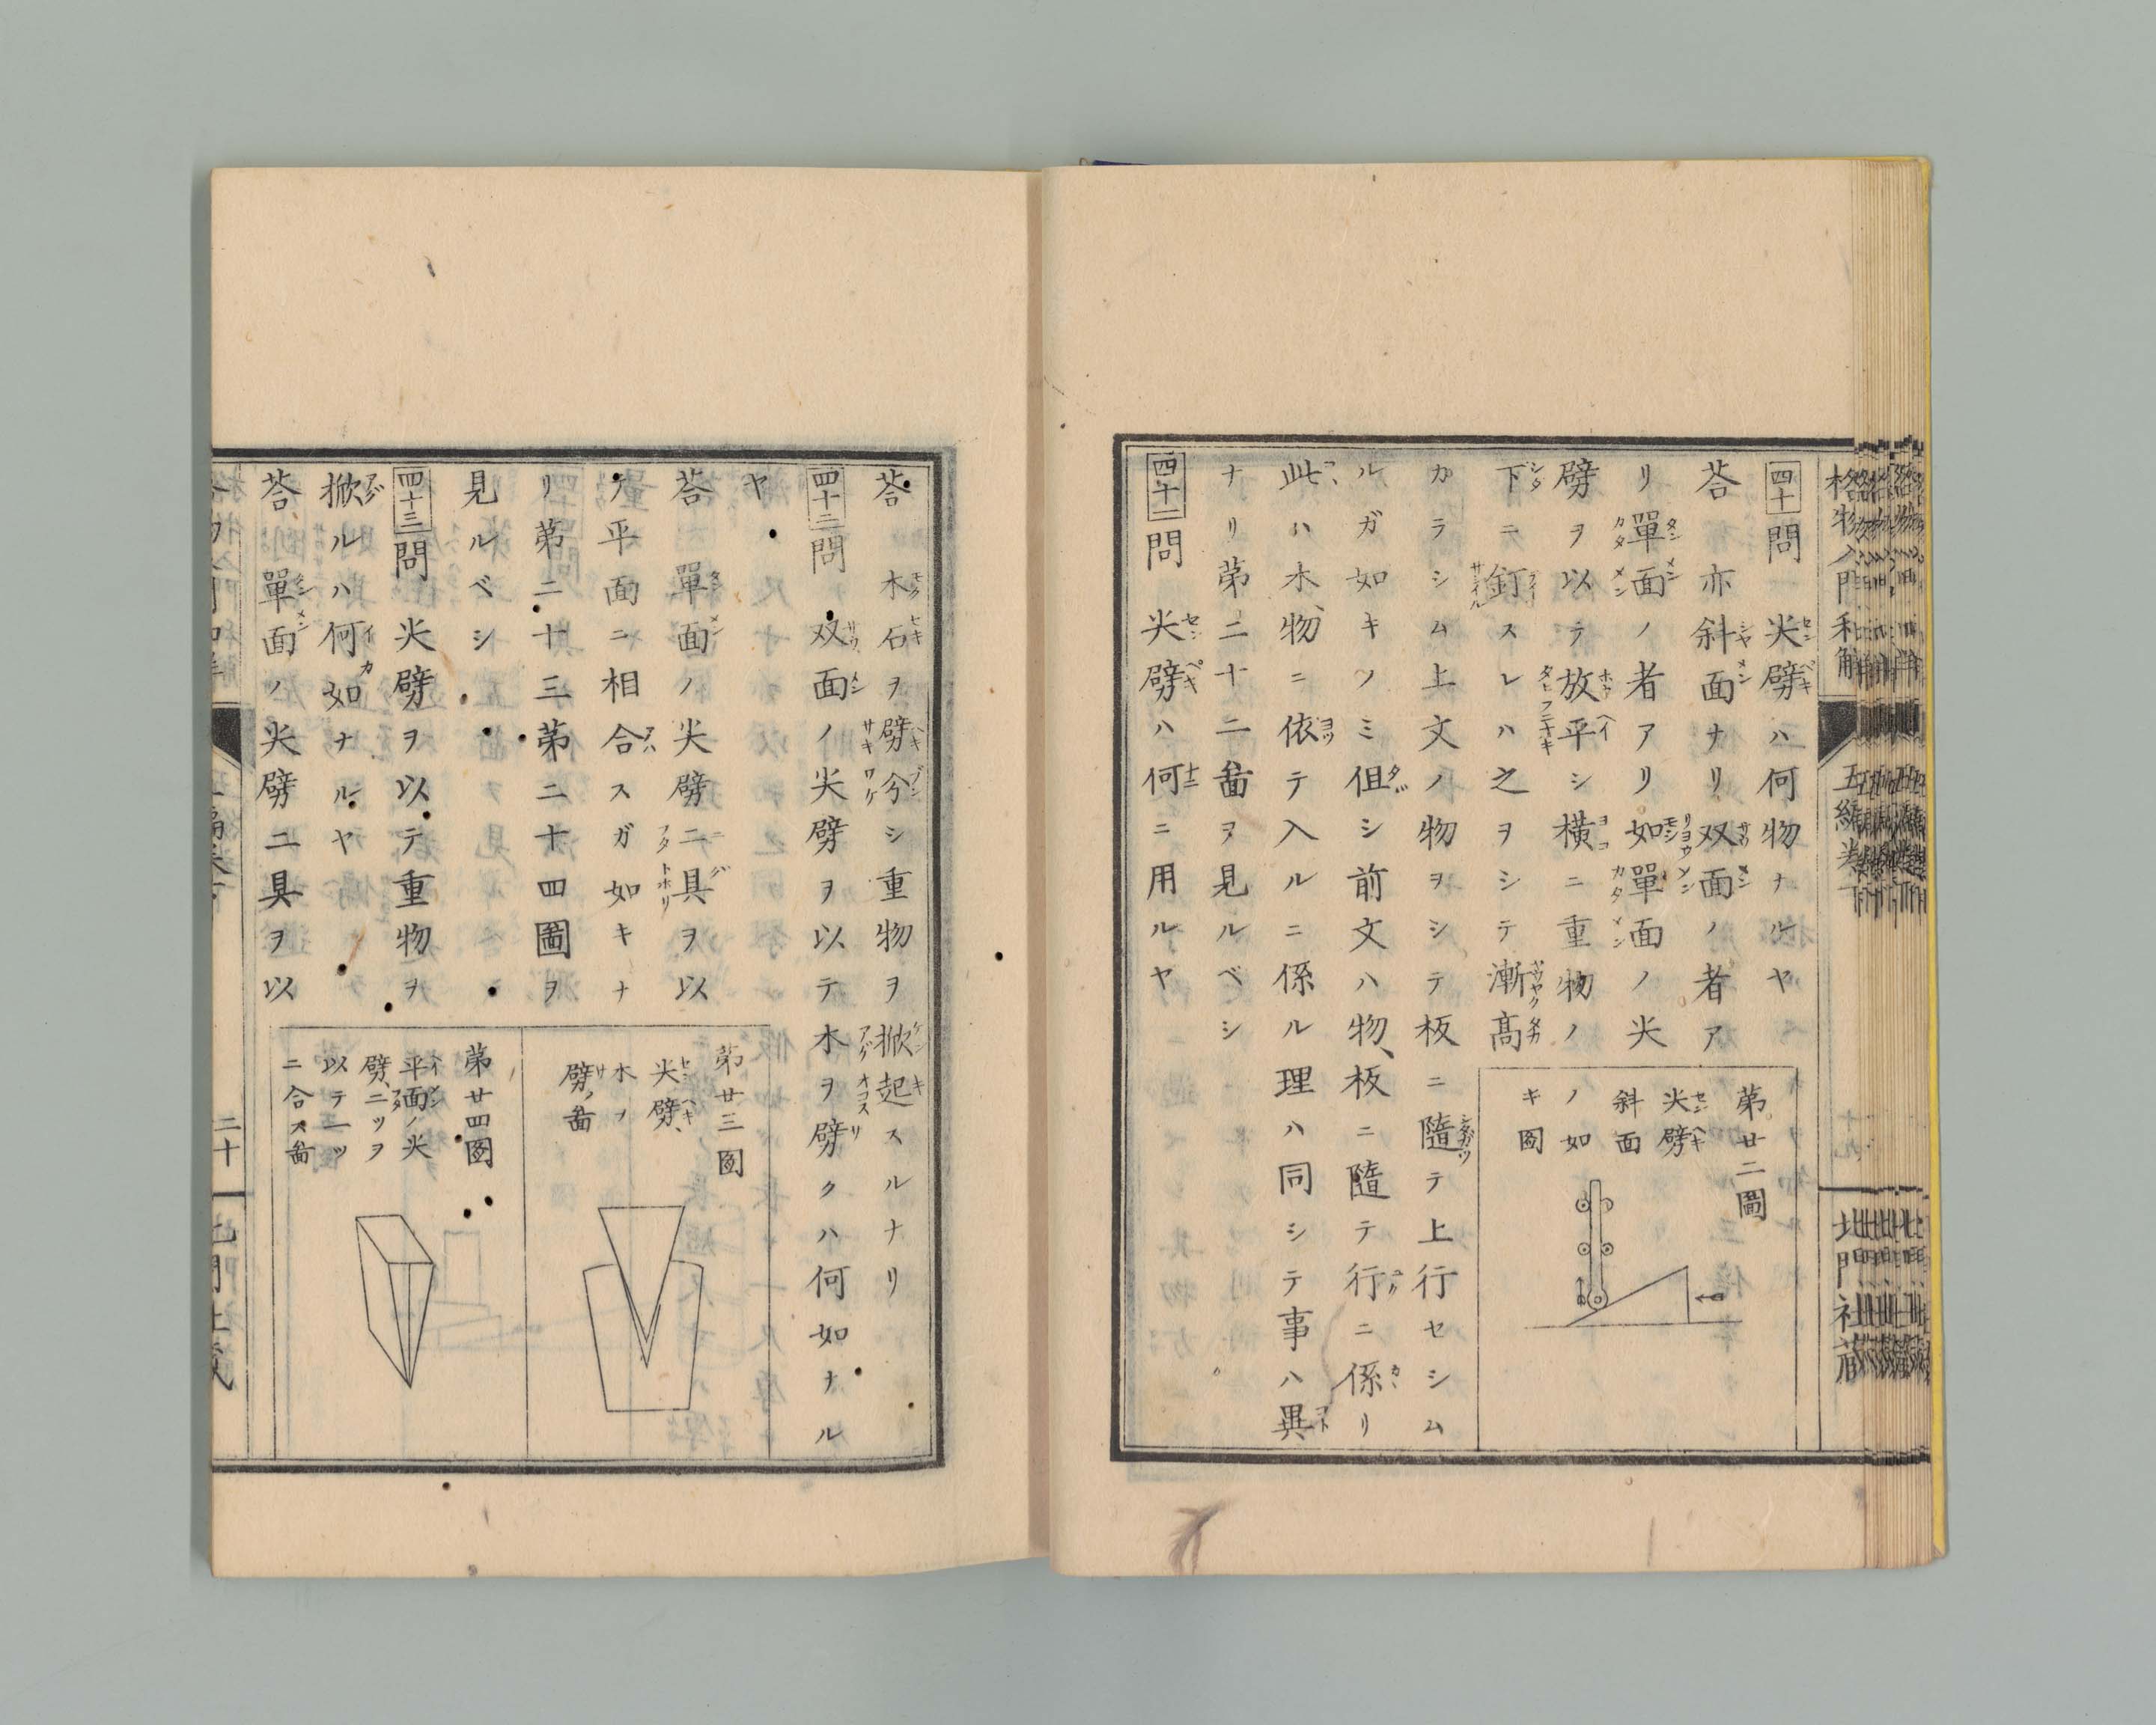 格物入門和解
五編巻下
北門社蔵
四十問 尖劈ハ何物ナルヤ
荅 亦斜面ナリ双面ノ者ア
リ單面ノ者アリ如單面ノ尖
劈ヲ以テ放平シ橫ニ重物ノ
下ニ釘スレハ之ヲシテ漸髙
カラシム上文ノ物ヲシテ板ニ隨テ上行セシム
ルガ如キノミ伹シ前文ハ物、板ニ隨テ行ニ係リ
此ハ木、物ニ依テ入ルニ係ル理ハ同シテ事ハ異
ナリ第二十二啚ヲ見ルベシ
第廿二圖
尖劈
斜面
ノ如
キ圖
四十一問 尖劈ハ何ニ用ルヤ
荅 木石ヲ劈分シ重物ヲ掀起スルナリ
四十二問 双面ノ尖劈ヲ以テ木ヲ劈クハ何如ナル
ヤ
荅 單面ノ尖劈二具ヲ以
テ平面ニ相合スガ如キナ
リ第二十三第二十四圖ヲ
見ルベシ
第廿三圖
尖劈、
木ヲ
劈ク啚
第廿四圖
平面ノ尖
劈、二ツヲ
以テ一ツ
ニ合ス啚
四十三問 尖劈ヲ以テ重物ヲ
掀ルハ何如ナルヤ
荅 單面ノ尖劈二具ヲ以
二十